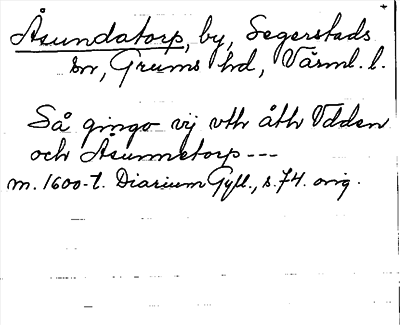 Åsundatorp, by, Segerstads
sn, Grums hd, Värml. l.
Så gingo vij vth åth Vdden
och Åsunnetorp ---
m. 1600-t. Diarium Gyll., s. 74. orig.